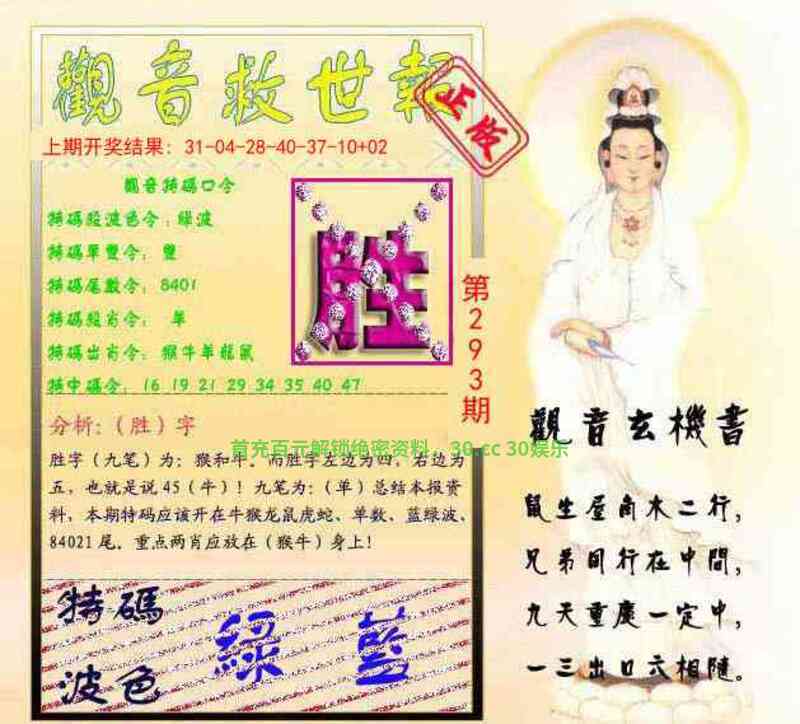 觀音救世報
正版
上期开奖结果：31-04-28-40-37-10+02
觀音特碼口令
特碼段波色令：綠波
特碼單雙令：雙
特碼尾數令：8401
特碼段肖令：单
特碼出肖令：猴牛羊龍鼠
特中碼令：16 19 21 29 34 35 40 47
胜
第293期
分析：（胜）字
首充百元解锁绝密资料，30.cc 30娱乐
胜字（九笔）为：猴和牛。而胜字左边为四，右边为
五，也就是说45（牛）！九笔为：（单）总结本报资
料，本期特码应该开在牛猴龙鼠虎蛇、单数、蓝绿波、
84021尾。重点两肖应放在（猴牛）身上！
特碼
波色
綠 藍
觀音玄機書
鼠生屋角木二行，
兄弟同行在中間，
九天重慶一定中，
一三出口六相隨。